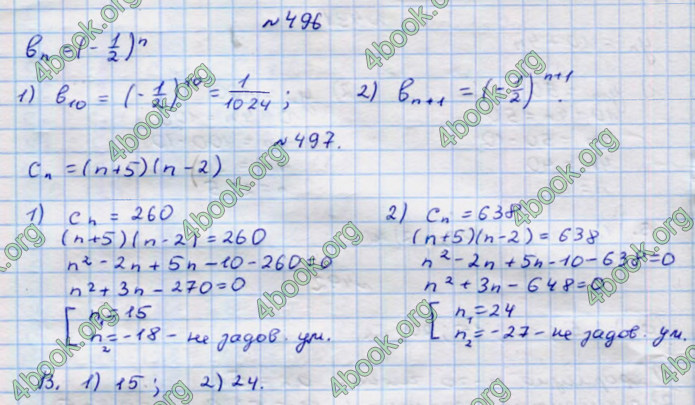 №496
вₙ = (-1/2)ⁿ
1) в₁₀ = (-1/2)¹⁰ = 1/1024 ; 2) вₙ₊₁ = (-1/2)ⁿ⁺¹.
№497.
cₙ = (n+5)(n-2)
1) cₙ = 260
(n+5)(n-2) = 260
n² - 2n + 5n - 10 - 260 = 0
n² + 3n - 270 = 0
[ n₁ = 15
n₂ = -18 - не задов. ум.
2) cₙ = 638
(n+5)(n-2) = 638
n² - 2n + 5n - 10 - 638 = 0
n² + 3n - 648 = 0
[ n₁ = 24
n₂ = -27 - не задов. ум.
В. 1) 15 ; 2) 24.
4book.org